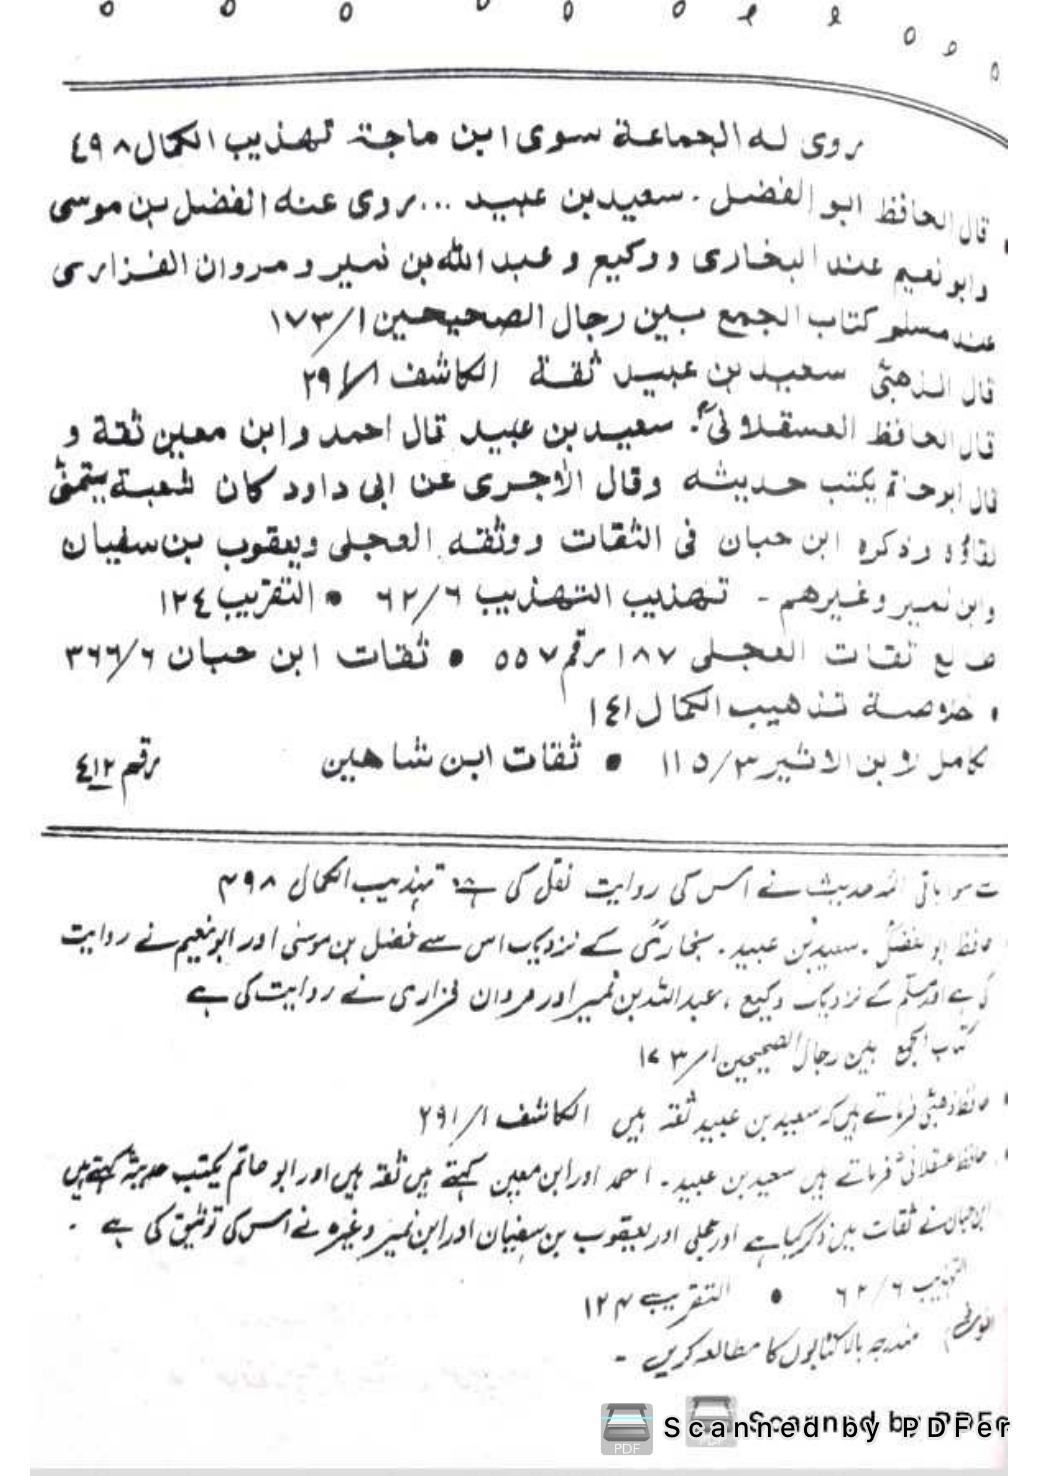 روى له الجماعة سوى ابن ماجة تهذيب الكمال ٤٩٨
قال الحافظ ابو الفضل . سعيد بن عبيد ... روى عنه الفضل بن موسى
وابو نعيم عند البخارى ووكيع و عبد الله بن نمير و مروان الفزارى
عند مسلم كتاب الجمع بين رجال الصحيحين ١/١٧٣
قال الذهبى سعيد بن عبيد ثقة الكاشف ١/٢٩١
قال الحافظ العسقلانى . سعيد بن عبيد قال احمد وابن معين ثقة و
قال ابو حاتم يكتب حديثه وقال الآجرى عن ابى داود كان شعبة يتمنى
لقاؤه وذكره ابن حبان فى الثقات ووثقه العجلى ويعقوب بن سفيان
وابن نمير وغيرهم - تهذيب التهذيب ٦/٦٢ • التقريب ١٢٤
طالع ثقات العجلى ١٨٧ رقم ٥٥٧ • ثقات ابن حبان ٦/٣٦٦
• خلاصة تذهيب الكمال ١٤١
كامل لابن الاثير ٣/١١٥ • ثقات ابن شاهين رقم ٤١٢
سوا باقی ائمہ حدیث نے اس کی روایت نقل کی ہے تہذیب الکمال ۴۹۸
حافظ ابو الفضل . سعید بن عبید . بخاری کے نزدیک اس سے فضل بن موسیٰ اور ابو نعیم نے روایت
کی ہے اور مسلم کے نزدیک وکیع ، عبداللہ بن نمیر اور مروان فزاری نے روایت کی ہے
کتاب الجمع بین رجال الصحیحین ۱/۱۷۳
• حافظ ذھبی فرماتے ہیں کہ سعید بن عبید ثقہ ہیں الکاشف ۱/۲۹۱
• حافظ عسقلانی فرماتے ہیں سعید بن عبید . احمد اور ابن معین کہتے ہیں ثقہ ہیں اور ابو حاتم یکتب حدیثہ کہتے ہیں
ابن حبان نے ثقات میں ذکر کیا ہے اور عجلی اور یعقوب بن سفیان اور ابن نمیر وغیرہ نے اس کی توثیق کی ہے .
التہذیب ۶/۶۲ • التقریب ۱۲۴
مندرجہ بالا کتابوں کا مطالعہ کریں -
Scanned by PDFer